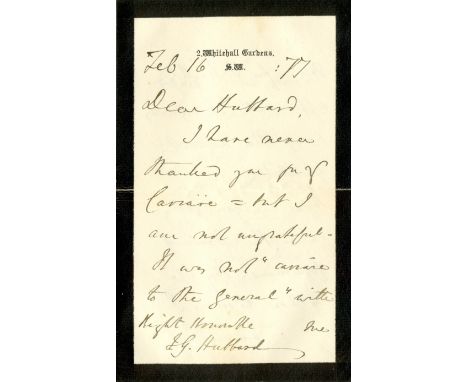 2. Whitehall Gardens,
S.W.
Feb 16 : 77
Dear Hubbard,
I have never
thanked you for yr
Caviäre = but I
am not ungrateful -
It was not "caviäre
to the general" with
Right Honorable me
J.G. Hubbard